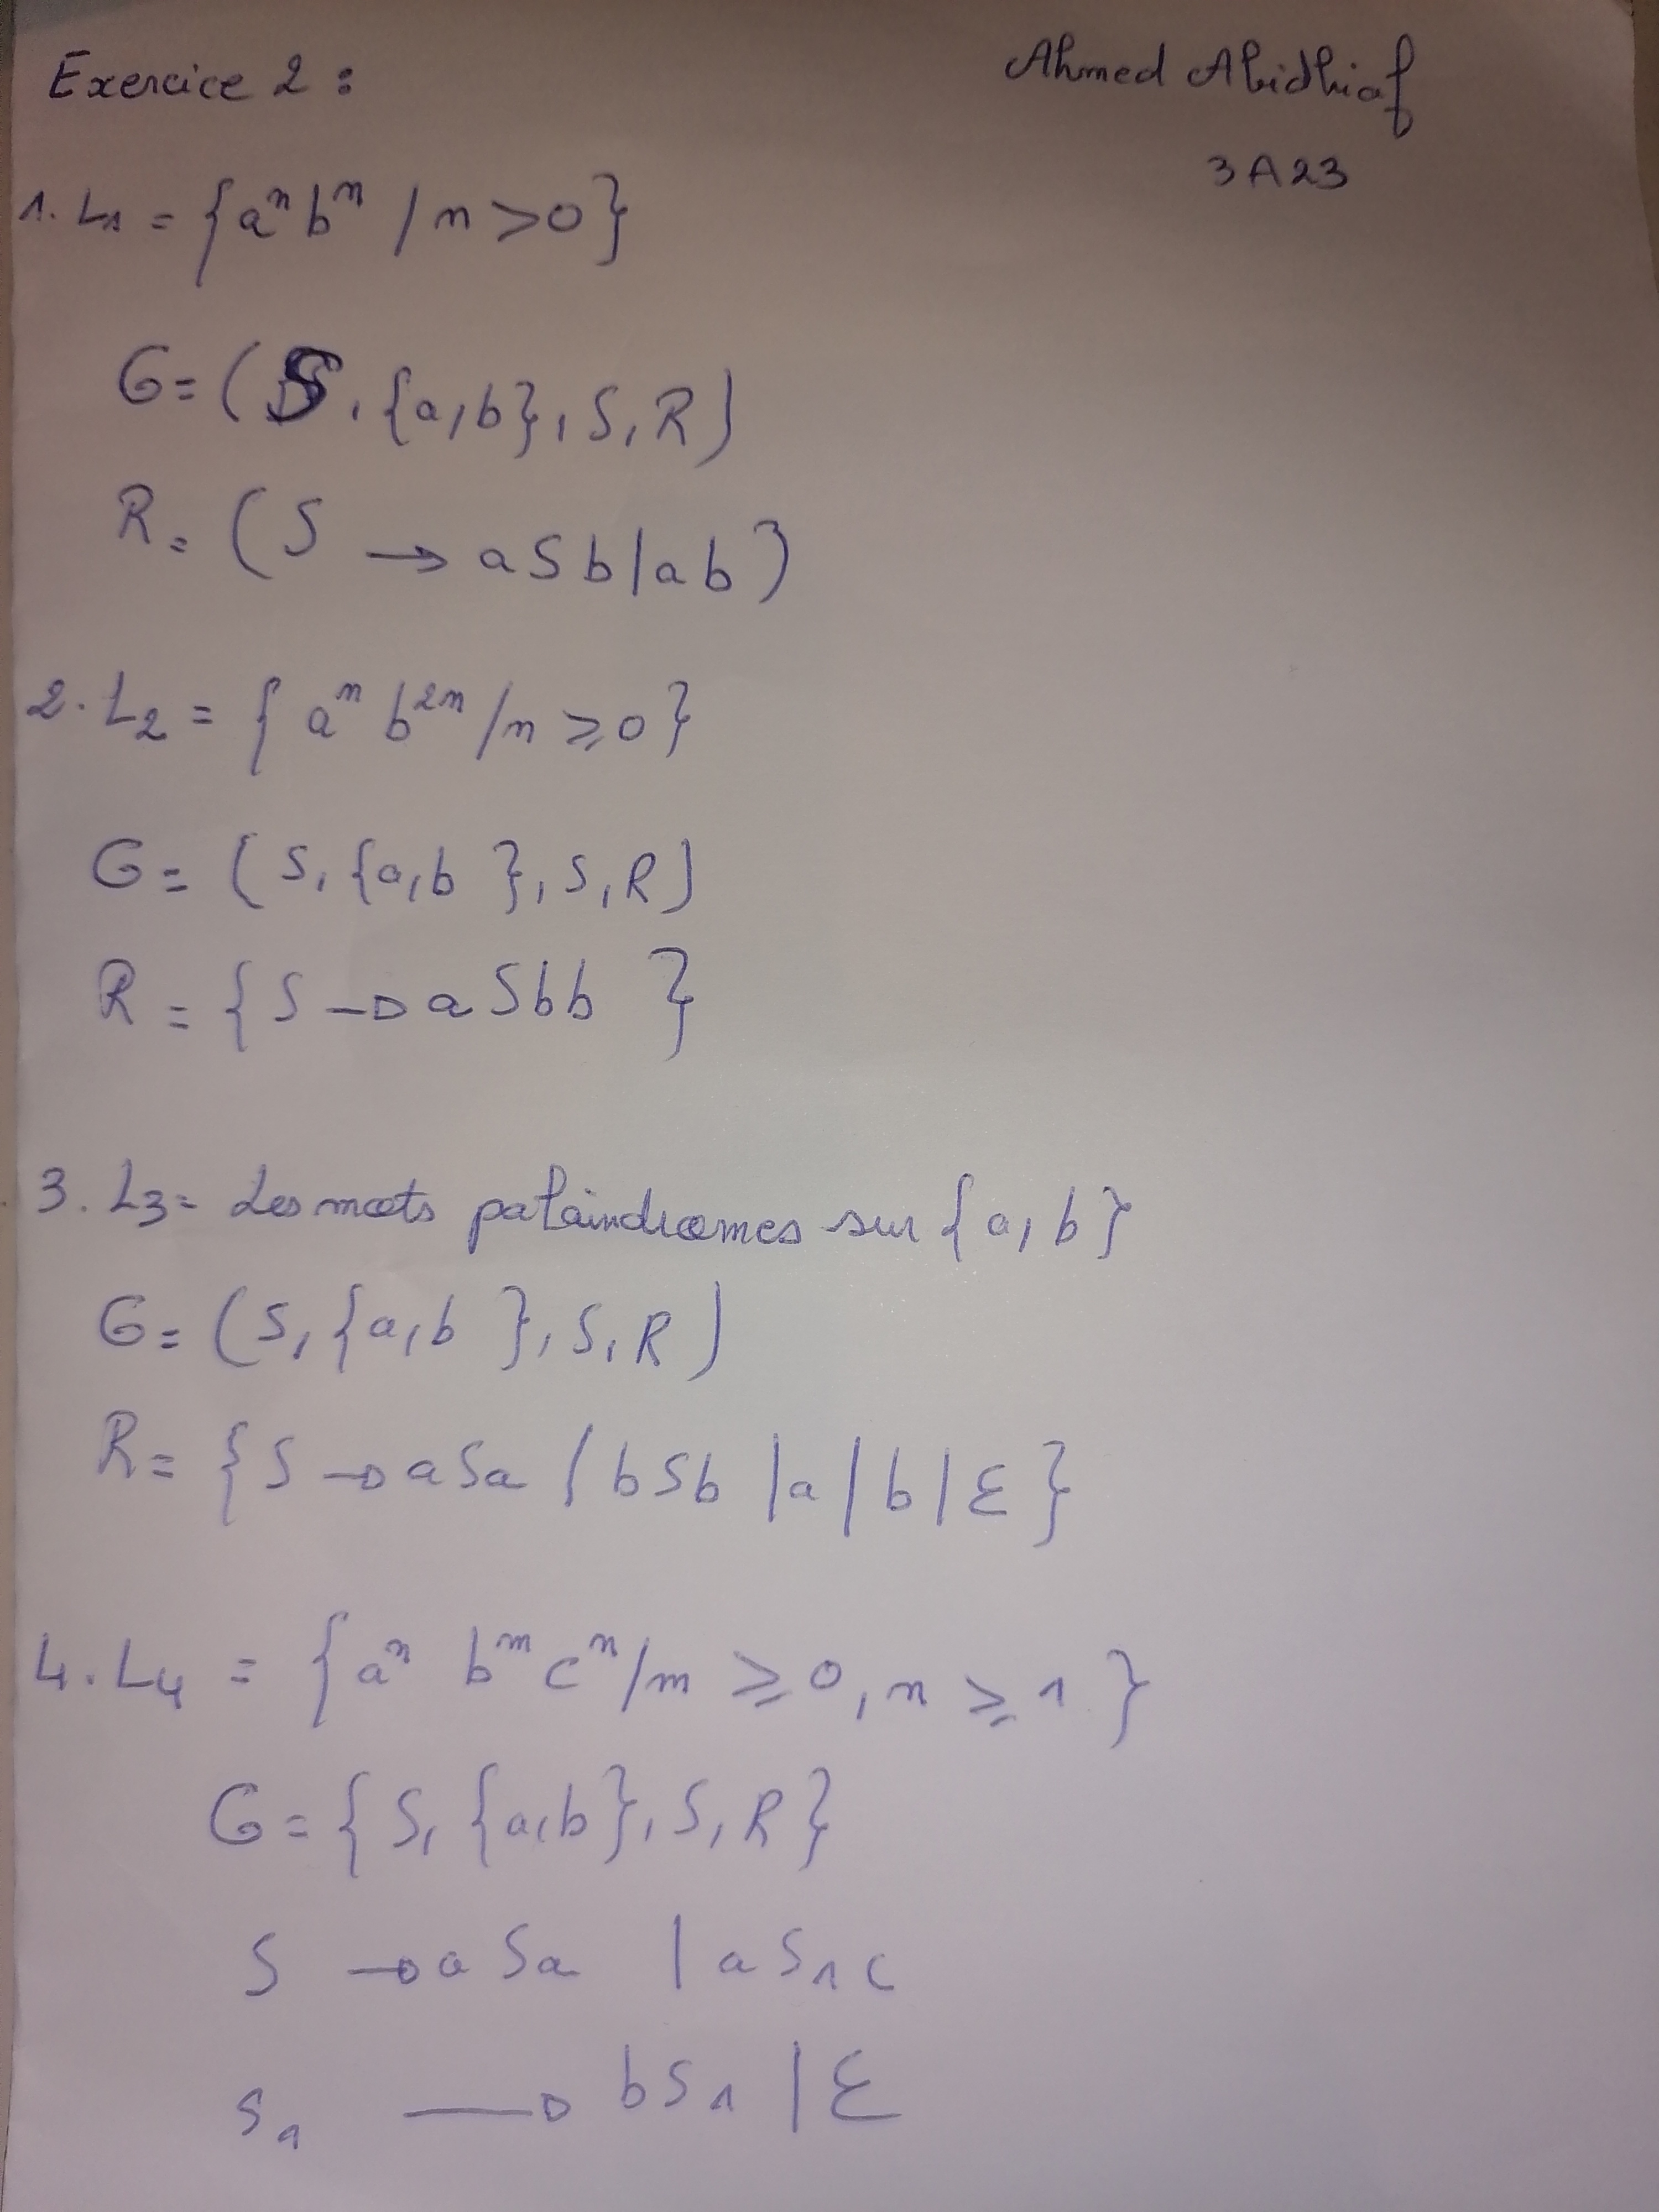 Exercice 2 :
Ahmed Abidhiaf
3A23
1. L₁ = {aⁿ bⁿ / n > 0}
G = (S, {a,b}, S, R)
R = (S → aSb | ab)
2. L₂ = {aⁿ b²ⁿ / n ≥ 0}
G = (S, {a,b}, S, R)
R = {S → aSbb }
3. L3 = Les mots palaindromes sur {a, b}
G = (S, {a,b }, S, R)
R = {S → aSa / bSb | a / b | ε}
4. L₄ = {aⁿ bᵐ cⁿ / m ≥ 0, n ≥ 1}
G = {S, {a,b}, S, R}
S → aSa | aS₁c
S₁ → bS₁ | ε